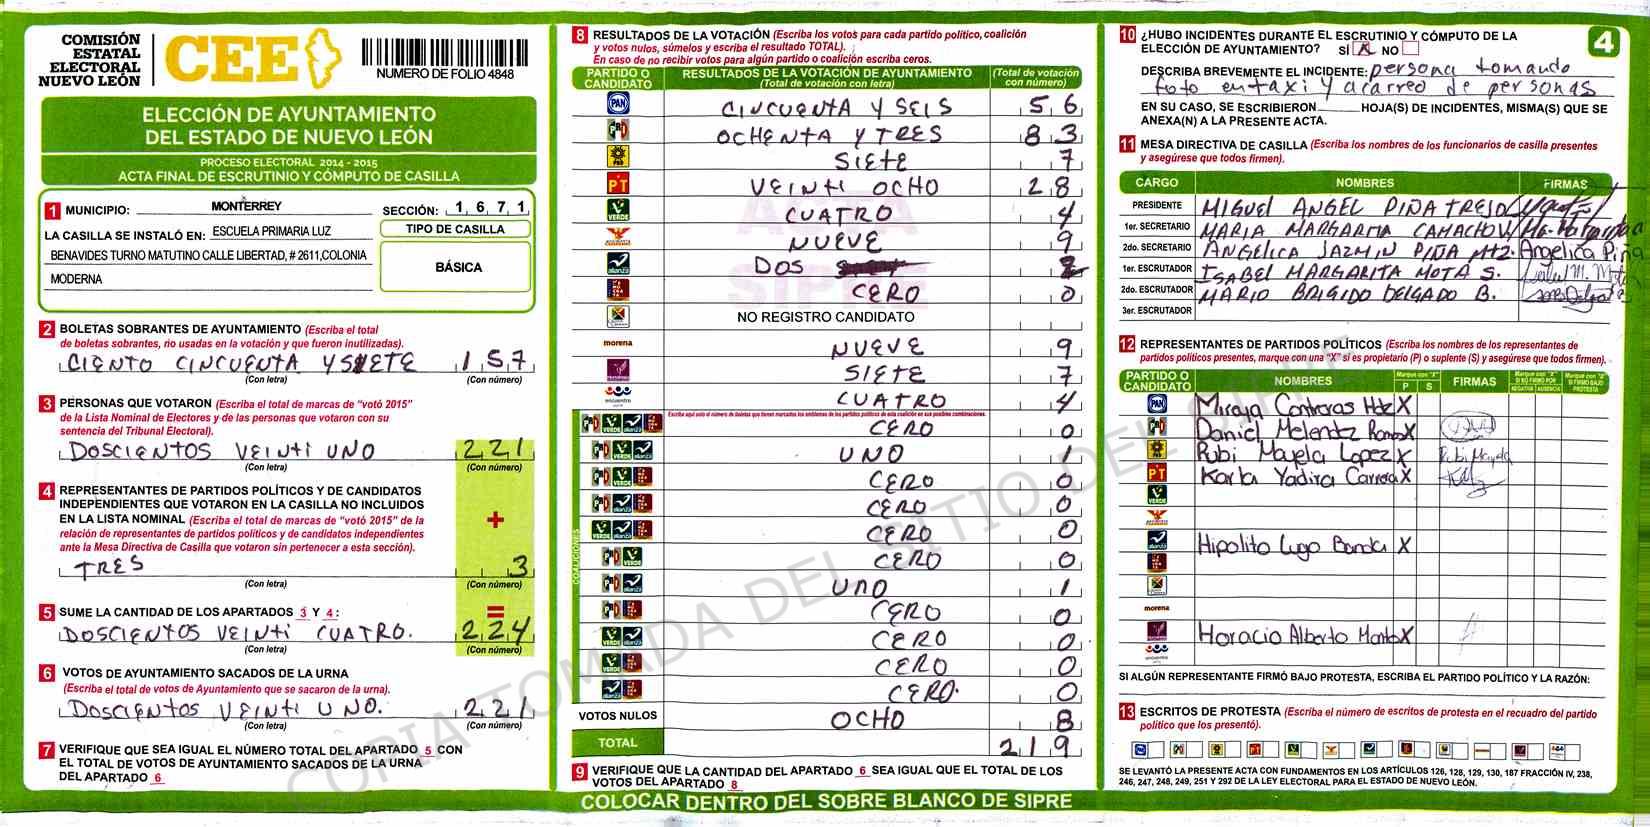 COMISIÓN
ESTATAL
ELECTORAL
NUEVO LEÓN
CEE
NUMERO DE FOLIO 4848
ELECCIÓN DE AYUNTAMIENTO
DEL ESTADO DE NUEVO LEÓN
PROCESO ELECTORAL 2014 - 2015
ACTA FINAL DE ESCRUTINIO Y CÓMPUTO DE CASILLA
1 MUNICIPIO: MONTERREY SECCIÓN: 1 6 7 1
LA CASILLA SE INSTALÓ EN: ESCUELA PRIMARIA LUZ
BENAVIDES TURNO MATUTINO CALLE LIBERTAD, # 2611,COLONIA
MODERNA
TIPO DE CASILLA
BÁSICA
2 BOLETAS SOBRANTES DE AYUNTAMIENTO (Escriba el total
de boletas sobrantes, no usadas en la votación y que fueron inutilizadas).
CIENTO CINCUENTA Y SIETE 157
(Con letra) (Con número)
3 PERSONAS QUE VOTARON (Escriba el total de marcas de “votó 2015”
de la Lista Nominal de Electores y de las personas que votaron con su
sentencia del Tribunal Electoral).
DOSCIENTOS VEINTI UNO 221
(Con letra) (Con número)
4 REPRESENTANTES DE PARTIDOS POLÍTICOS Y DE CANDIDATOS
INDEPENDIENTES QUE VOTARON EN LA CASILLA NO INCLUIDOS
EN LA LISTA NOMINAL (Escriba el total de marcas de “votó 2015” de la
relación de representantes de partidos políticos y de candidatos independientes
ante la Mesa Directiva de Casilla que votaron sin pertenecer a esta sección).
+
TRES 3
(Con letra) (Con número)
5 SUME LA CANTIDAD DE LOS APARTADOS 3 Y 4: =
DOSCIENTOS VEINTI CUATRO. 224
(Con letra) (Con número)
6 VOTOS DE AYUNTAMIENTO SACADOS DE LA URNA
(Escriba el total de votos de Ayuntamiento que se sacaron de la urna).
DOSCIENTOS VEINTI UNO. 221
(Con letra) (Con número)
7 VERIFIQUE QUE SEA IGUAL EL NÚMERO TOTAL DEL APARTADO 5 CON
EL TOTAL DE VOTOS DE AYUNTAMIENTO SACADOS DE LA URNA
DEL APARTADO 6
8 RESULTADOS DE LA VOTACIÓN (Escriba los votos para cada partido político, coalición
y votos nulos, súmelos y escriba el resultado TOTAL).
En caso de no recibir votos para algún partido o coalición escriba ceros.
PARTIDO O CANDIDATO RESULTADOS DE LA VOTACIÓN DE AYUNTAMIENTO (Total de votación con letra) (Total de votación con número)
PAN CINCUENTA Y SEIS 56
PRI OCHENTA Y TRES 83
PRD SIETE 7
PT VEINTI OCHO 28
VERDE CUATRO 4
NUEVE 9
alianza DOS 2
CERO 0
NO REGISTRO CANDIDATO
morena NUEVE 9
SIETE 7
encuentro CUATRO 4
Escriba aquí solo el número de boletas que tienen marcados los emblemas de los partidos políticos de esta coalición en sus posibles combinaciones.
COALICIONES
CERO 0
UNO 1
CERO 0
CERO 0
CERO 0
CERO 0
UNO 1
CERO 0
CERO 0
CERO 0
CERO. 0
VOTOS NULOS OCHO 8
TOTAL 219
9 VERIFIQUE QUE LA CANTIDAD DEL APARTADO 6 SEA IGUAL QUE EL TOTAL DE LOS
VOTOS DEL APARTADO 8
COLOCAR DENTRO DEL SOBRE BLANCO DE SIPRE
ACTA
SIPRE
COPIA TOMADA DEL SITIO DEL SIPRE
10 ¿HUBO INCIDENTES DURANTE EL ESCRUTINIO Y CÓMPUTO DE LA
ELECCIÓN DE AYUNTAMIENTO? SÍ X NO
4
DESCRIBA BREVEMENTE EL INCIDENTE: persona tomando
foto en taxi y acarreo de personas
EN SU CASO, SE ESCRIBIERON HOJA(S) DE INCIDENTES, MISMA(S) QUE SE
ANEXA(N) A LA PRESENTE ACTA.
11 MESA DIRECTIVA DE CASILLA (Escriba los nombres de los funcionarios de casilla presentes
y asegúrese que todos firmen).
CARGO NOMBRES FIRMAS
PRESIDENTE MIGUEL ANGEL PIÑA TREJO
1er. SECRETARIO MARIA MARGARITA CAMACHO
2do. SECRETARIO ANGELICA JAZMIN PIÑA MTZ. Angelica Piña
1er. ESCRUTADOR ISABEL MARGARITA MOTA S.
2do. ESCRUTADOR MARIO BRIGIDO DELGADO B.
3er. ESCRUTADOR
12 REPRESENTANTES DE PARTIDOS POLÍTICOS (Escriba los nombres de los representantes de
partidos políticos presentes, marque con una “X” si es propietario (P) o suplente (S) y asegúrese que todos firmen).
PARTIDO O CANDIDATO NOMBRES Marque con "X" P S FIRMAS Marque con "X" SI NO FIRMÓ POR NEGATIVA AUSENCIA Marque con "X" SI FIRMÓ BAJO PROTESTA
PAN Miraya Contreras Hdz X
Daniel Melendz Ramos X
Rubi Mayela Lopez X Rubi Mayela
PT Karla Yadira Carreon X
VERDE
alianza Hipolito Lugo Banda X
morena
Horacio Alberto X
encuentro
SI ALGÚN REPRESENTANTE FIRMÓ BAJO PROTESTA, ESCRIBA EL PARTIDO POLÍTICO Y LA RAZÓN:
13 ESCRITOS DE PROTESTA (Escriba el número de escritos de protesta en el recuadro del partido
político que los presentó).
SE LEVANTÓ LA PRESENTE ACTA CON FUNDAMENTOS EN LOS ARTÍCULOS 126, 128, 129, 130, 187 FRACCIÓN IV, 238,
246, 247, 248, 249, 251 Y 292 DE LA LEY ELECTORAL PARA EL ESTADO DE NUEVO LEÓN.